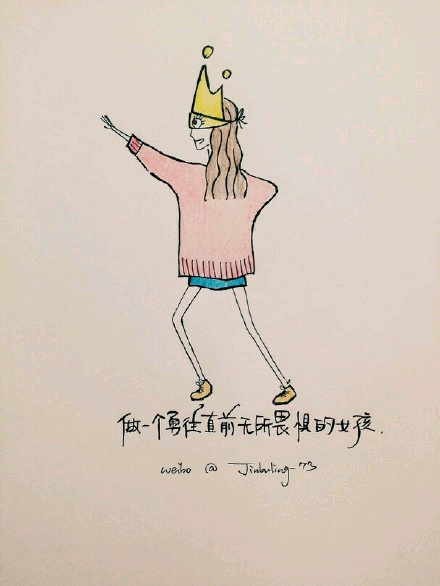 做一个勇往直前无所畏惧的女孩.
weibo @ Jinbuling-73